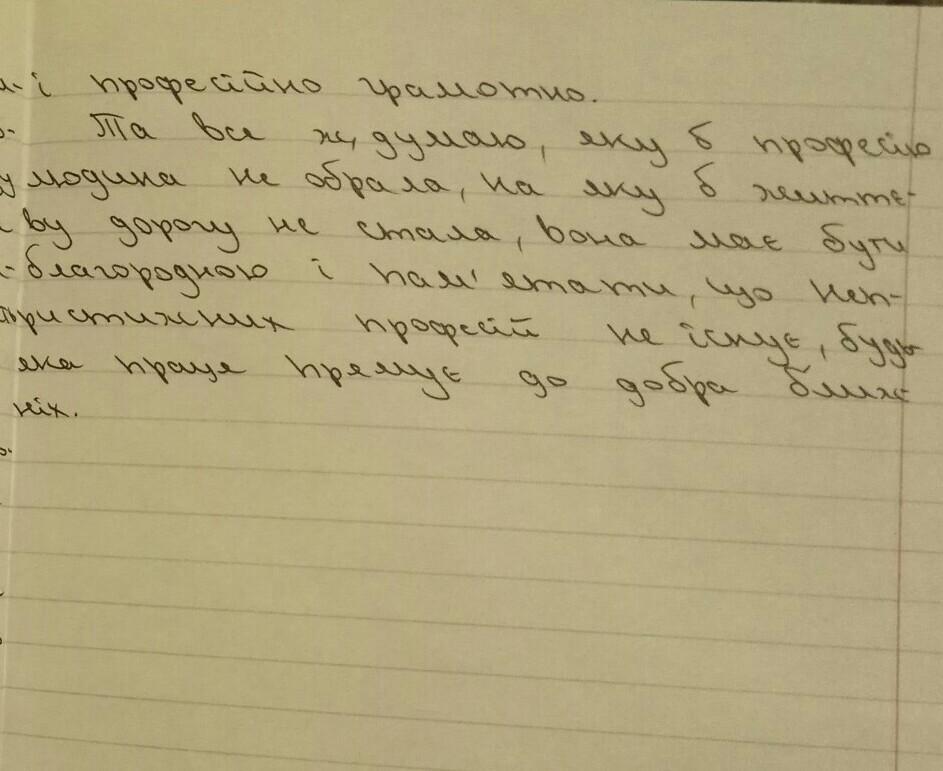 і професійно грамотно.
Та все ж, думаю, яку б професію
людина не обрала, на яку б життє-
ву дорогу не стала, вона має бути
благородною і пам'ятати, що неп-
ристижних професій не існує, будь
яка праця прямує до добра ближ-
ніх.